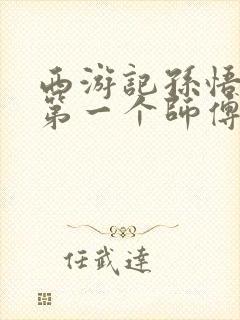 西游記孫悟
第一个師傅
任武達